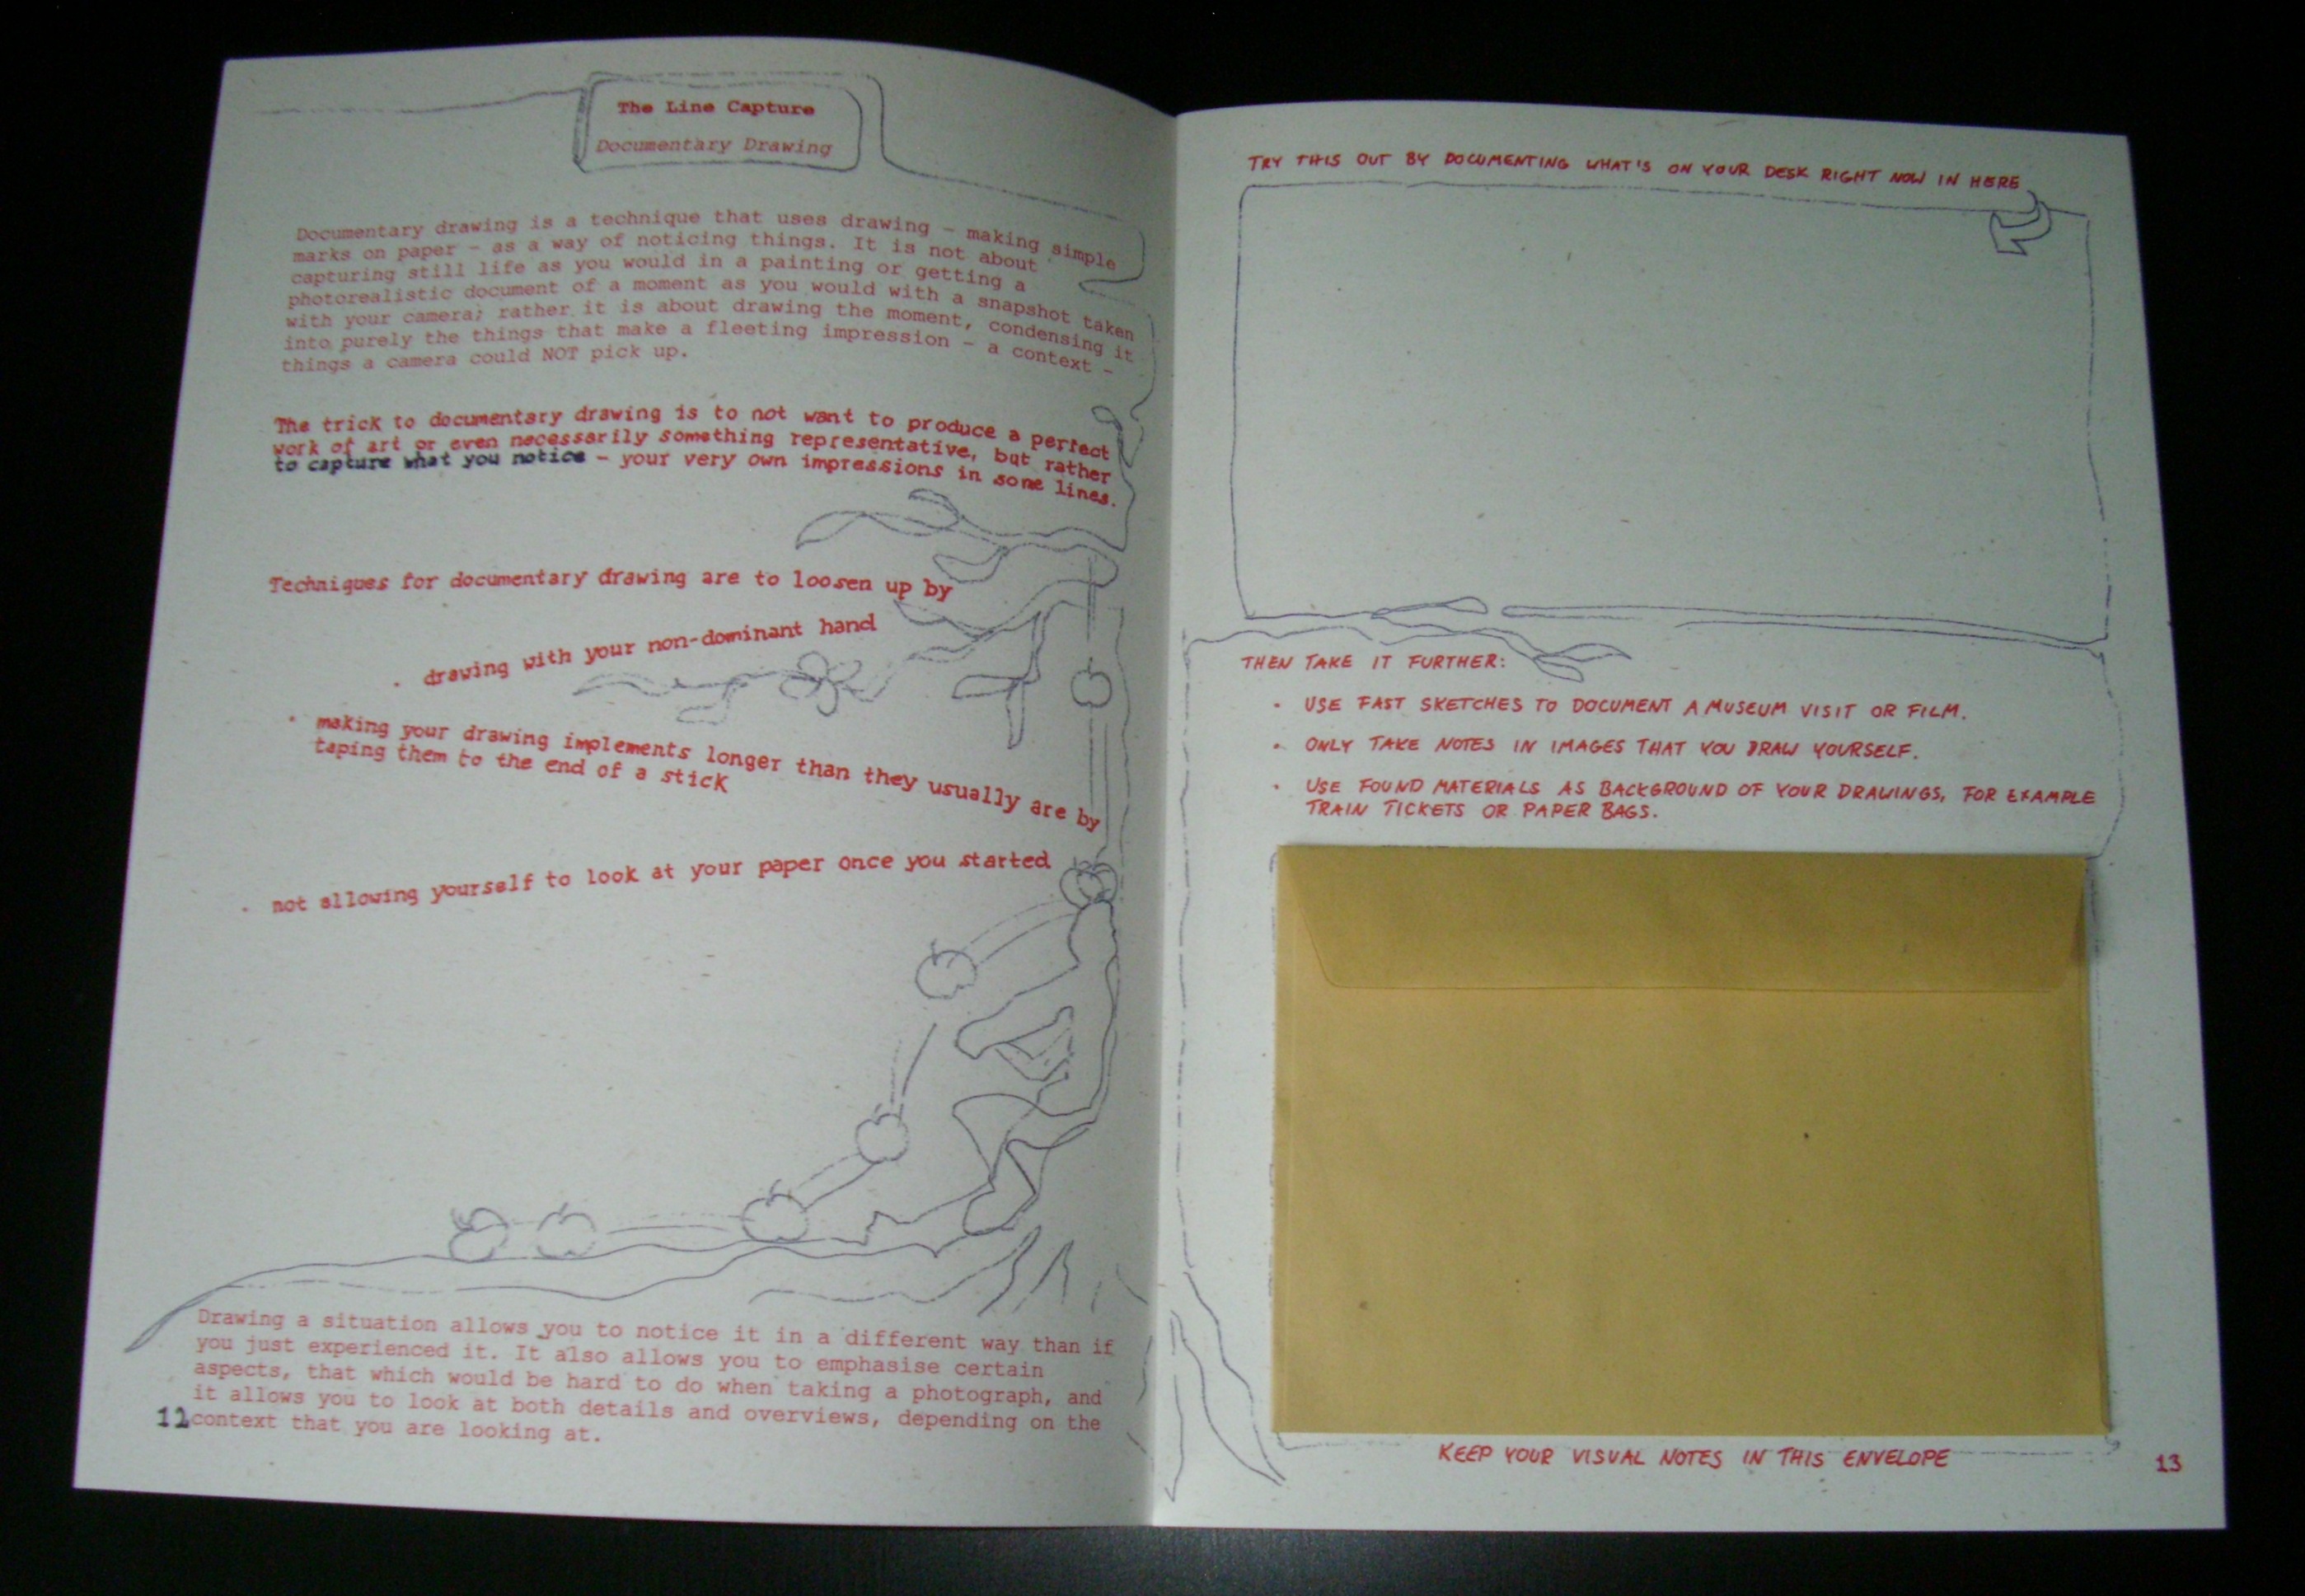 The Line Capture
Documentary Drawing
Documentary drawing is a technique that uses drawing – making simple
marks on paper – as a way of noticing things. It is not about
capturing still life as you would in a painting or getting a
photorealistic document of a moment as you would with a snapshot taken
with your camera; rather it is about drawing the moment, condensing it
into purely the things that make a fleeting impression – a context –
things a camera could NOT pick up.
The trick to documentary drawing is to not want to produce a perfect
work of art or even necessarily something representative, but rather
to capture what you notice – your very own impressions in some lines.
Techniques for documentary drawing are to loosen up by
· drawing with your non-dominant hand
· making your drawing implements longer than they usually are by
taping them to the end of a stick
· not allowing yourself to look at your paper once you started
Drawing a situation allows you to notice it in a different way than if
you just experienced it. It also allows you to emphasise certain
aspects, that which would be hard to do when taking a photograph, and
it allows you to look at both details and overviews, depending on the
context that you are looking at.
12
TRY THIS OUT BY DOCUMENTING WHAT'S ON YOUR DESK RIGHT NOW IN HERE
THEN TAKE IT FURTHER:
· USE FAST SKETCHES TO DOCUMENT A MUSEUM VISIT OR FILM.
· ONLY TAKE NOTES IN IMAGES THAT YOU DRAW YOURSELF.
· USE FOUND MATERIALS AS BACKGROUND OF YOUR DRAWINGS, FOR EXAMPLE
TRAIN TICKETS OR PAPER BAGS.
KEEP YOUR VISUAL NOTES IN THIS ENVELOPE
13